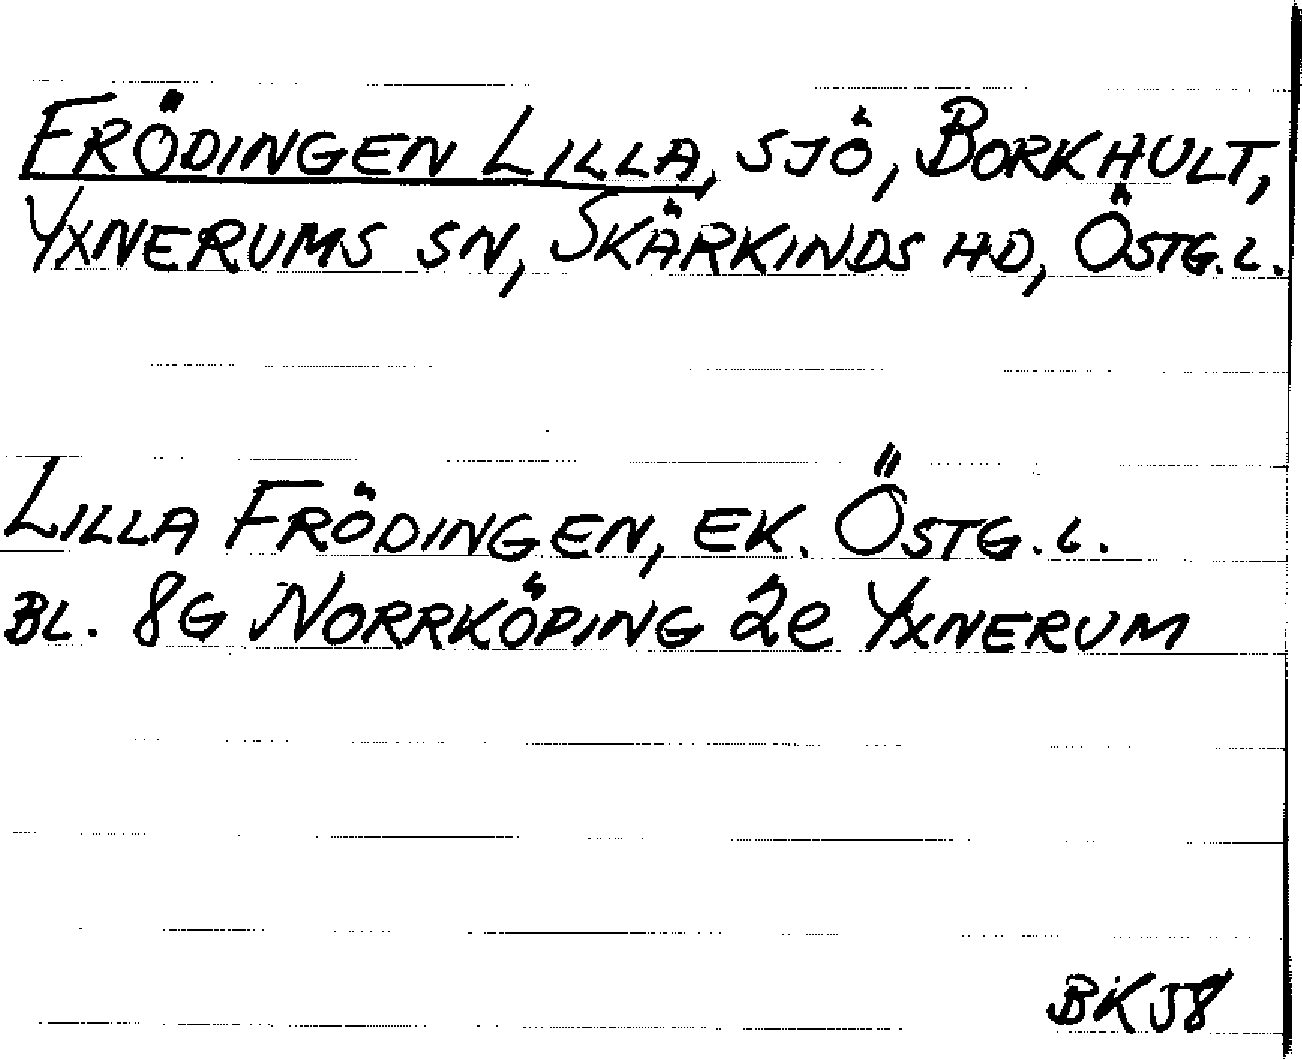 FRÖDINGEN LILLA, SJÖ, BORKHULT,
YXNERUMS SN, SKÄRKINDS HD, ÖSTG.L.
LILLA FRÖDINGEN, EK. ÖSTG.L.
BL. 8G NORRKÖPING 2e YXNERUM
BK58